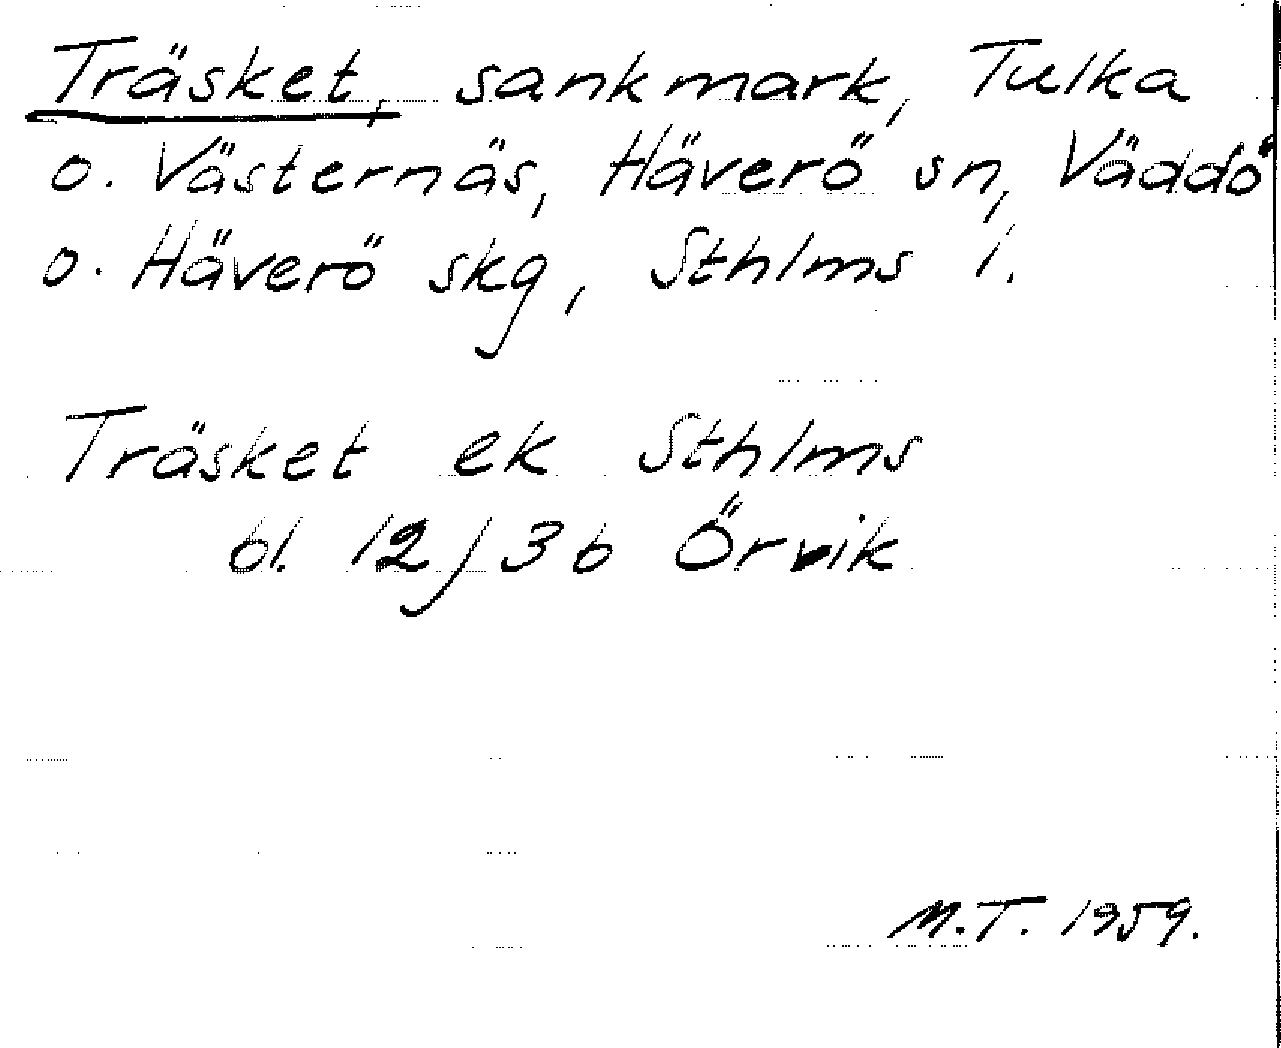 Träsket, sankmark, Tulka
o. Västernäs, Häverö sn, Väddö
o. Häverö skg, Sthlms l.
Träsket ek Sthlms
bl. 12 J 3b Örvik
M.T. 1959.